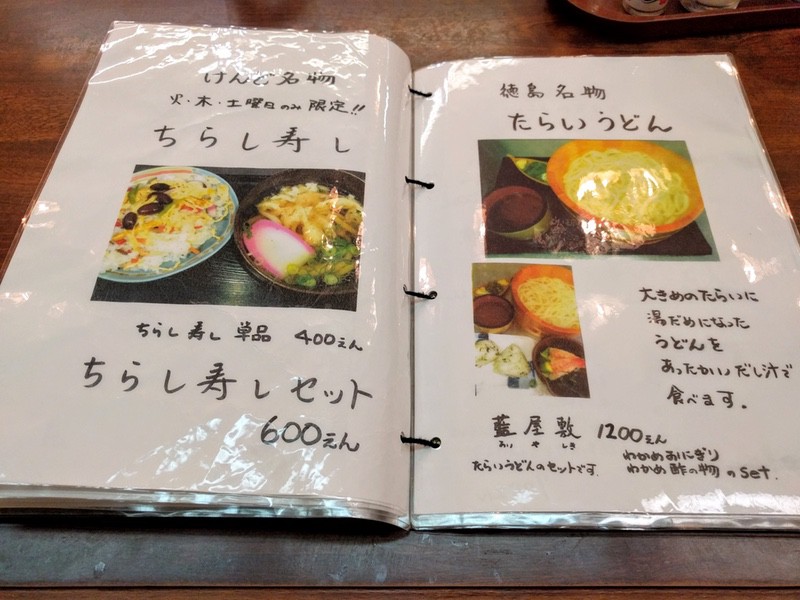 けんど名物
火・木・土曜日のみ限定!!
ちらし寿し
ちらし寿し 単品 400えん
ちらし寿しセット
600えん
徳島名物
たらいうどん
大きめのたらいに
湯だめになった
うどんを
あったかいだし汁で
食べます。
藍屋敷 1200えん
あい や しき
たらいうどんのセットです。
わかめおにぎり
わかめ酢の物 のset.